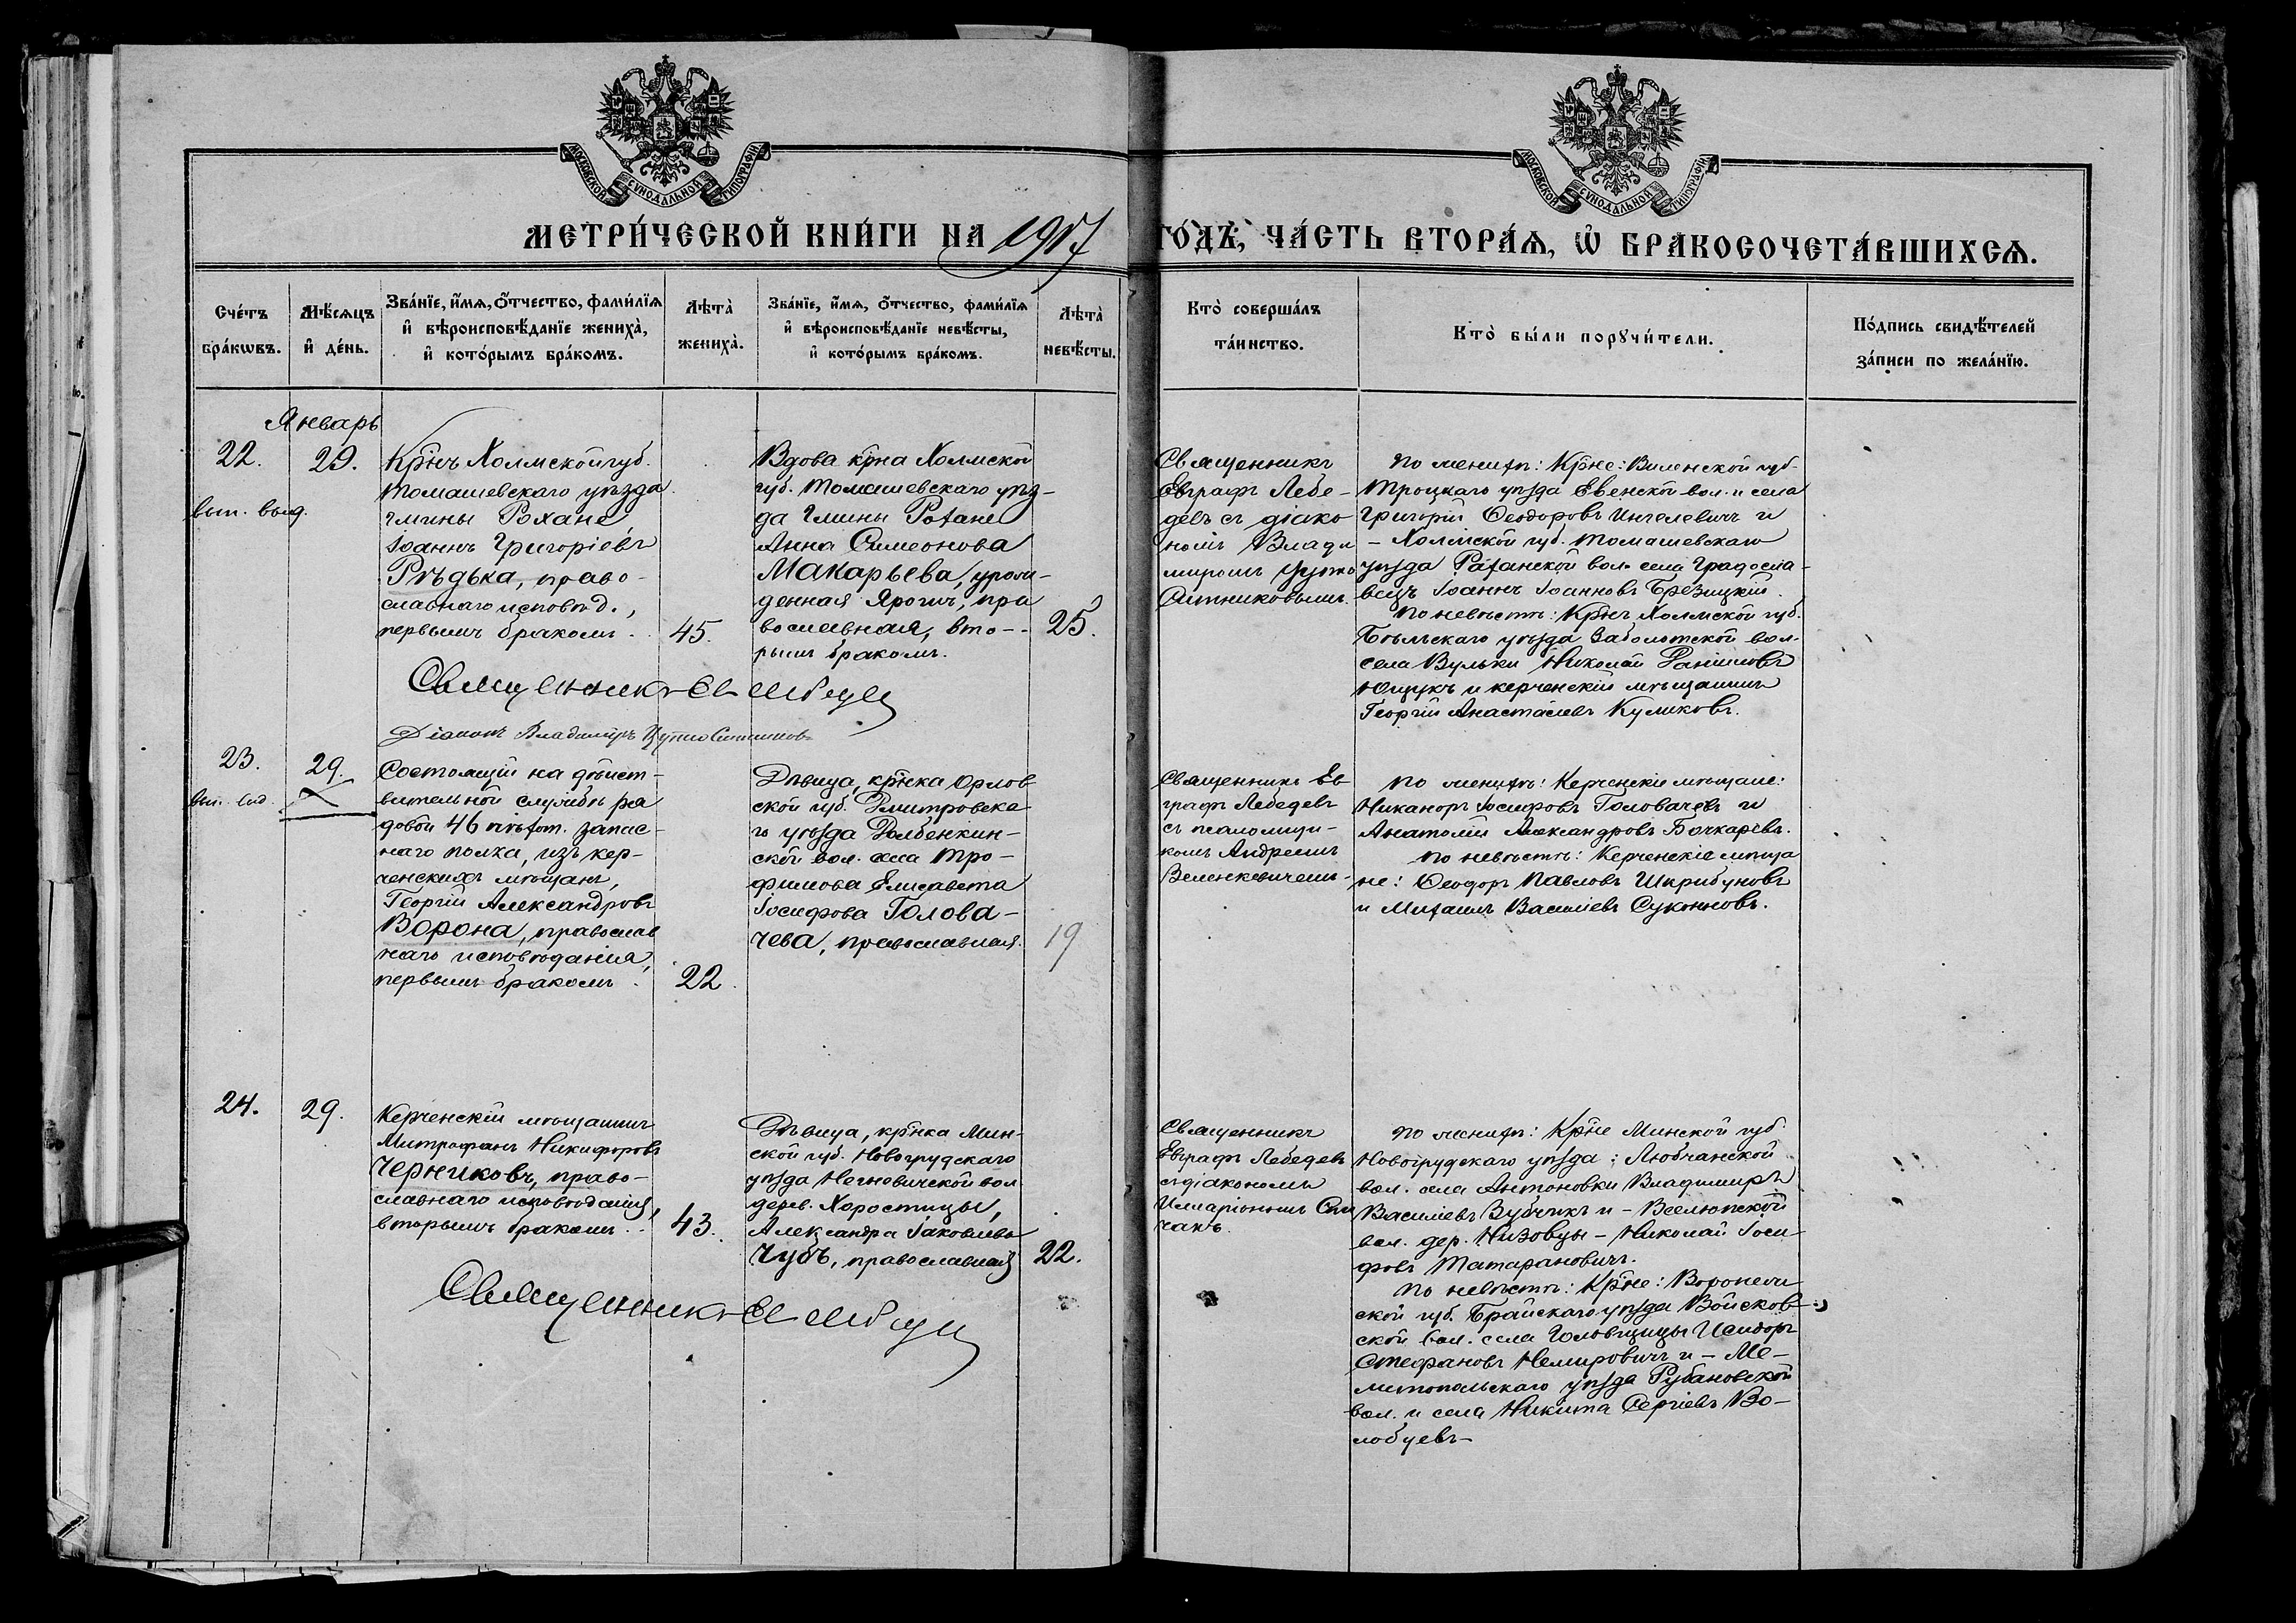 МОСКОВСКОЙ СУНОДАЛЬНОЙ ТИПОГРАФІИ
МОСКОВСКОЙ СУНОДАЛЬНОЙ ТИПОГРАФІИ
МЕТРИ́ЧЕСКОЙ КНИ́ГИ НА 1917 ГО́ДЪ, ЧА́СТЬ ВТОРА́Ѧ, Ѡ҆ БРАКОСОЧЕТА́ВШИХСѦ.
Сче́тъ бра́кѡвъ.
Мѣ́сѧцъ и҆ де́нь.
Зва́нїе, и҆́мѧ, ѻ҆́тчество, фами́лїѧ
и҆ вѣроисповѣ́данїе жениха̀,
и҆ кото́рымъ бра́комъ.
Лѣта̀ жениха̀.
Зва́нїе, и҆́мѧ, ѻ҆́тчество, фами́лїѧ
и҆ вѣроисповѣ́данїе невѣ́сты,
и҆ кото́рымъ бра́комъ.
Лѣта̀ невѣ́сты.
Кто̀ соверша́лъ
та́инство.
Кто̀ бы́ли порꙋчи́тели.
По́дпись свидѣ́телей
за́писи по жела́нїю.
Январь
22.
29.
вып. выд.
Кр̃нъ Холмской губ.
Томашевскаго уѣзда
гмины Рахане
Іоаннъ Григоріевъ
Рѣдька, право-
славнаго исповѣд.,
первымъ бракомъ.
45.
Вдова кр̃на Холмской
губ. Томашевскаго уѣз-
да гмины Рахане
Анна Симеонова
Макарьева, урож-
денная Яроши, пра
вославная, вто-
рымъ бракомъ.
25.
Священникъ
Евграфъ Лебе-
девъ съ діако
номъ Влади
миромъ Чугно
Ситниковымъ.
По женихѣ: Кр̃не: Виленской губ.
Троцкаго уѣзда Евенской вол. и села
Григорій Ѳеодоровъ Ингелевичъ и
- Холмской губ. Томашевскаго
уѣзда Раханской вол. села Градосла-
вецъ Іоаннъ Іоанновъ Брезицкій.
По невѣстѣ: Кр̃нъ Холмской губ.
Бѣльскаго уѣзда Заболотской вол.
села Вульки Николай Даніиловъ
Ющукъ и керченскій мѣщанинъ
Георгій Анастасіевъ Куликовъ.
Священникъ Ев Лебедев
Діаконъ Владиміръ Ситников
23.
29.
вып. выд.
Состоящій на дѣйст-
вительной службѣ ря
довой 46 пѣхот. запас-
наго полка, изъ кер-
ченскихъ мѣщанъ,
Георгій Александровъ
Ворона, православ
наго исповѣданія,
первымъ бракомъ.
22.
Дѣвица, кр̃нка Орлов
ской губ. Дмитровска
го уѣзда Долбенкин-
ской вол. села Тро-
фимова Елисавета
Іосифова Голова-
чева, православная.
19
Священникъ Ев
графъ Лебедевъ
съ псаломщи-
комъ Андреемъ
Веленкевичемъ.
По женихѣ: Керченскіе мѣщане:
Никаноръ Іосифовъ Головачевъ и
Анатолій Александровъ Бочкаревъ.
По невѣстѣ: Керченскіе мѣща
не: Ѳеодоръ Павловъ Шкрибуновъ
и Михаилъ Василіевъ Суконновъ.
24.
29.
Керченскій мѣщанинъ
Митрофанъ Никифоровъ
Черниковъ, право-
славнаго исповѣданія,
вторымъ бракомъ.
43.
Дѣвица, кр̃нка Мин-
ской губ. Новогрудскаго
уѣзда Негневичской вол.
дерев. Хоростицы,
Александра Іаковлева
Чубъ, православная
22.
Священникъ
Евграфъ Лебедевъ
съ діакономъ
Иларіономъ
По женихѣ: Кр̃не Минской губ.
Новогрудскаго уѣзда: Любчанской
вол. села Антоновки Владимиръ
Василіевъ Зубчикъ и - Вселюпской
вол. дер. Низовцы - Николай Іоси-
фовъ Татарановичъ.
По невѣстѣ: Кр̃не: Воронеж
ской губ. уѣзда Войсков-
ской вол. села Головщицы Исидоръ
Стефановъ Немировичъ и - Ме-
литопольскаго уѣзда Рубановской
вол. и села Никита Сергіевъ Во-
лобуевъ-
Священникъ Ев Лебедев